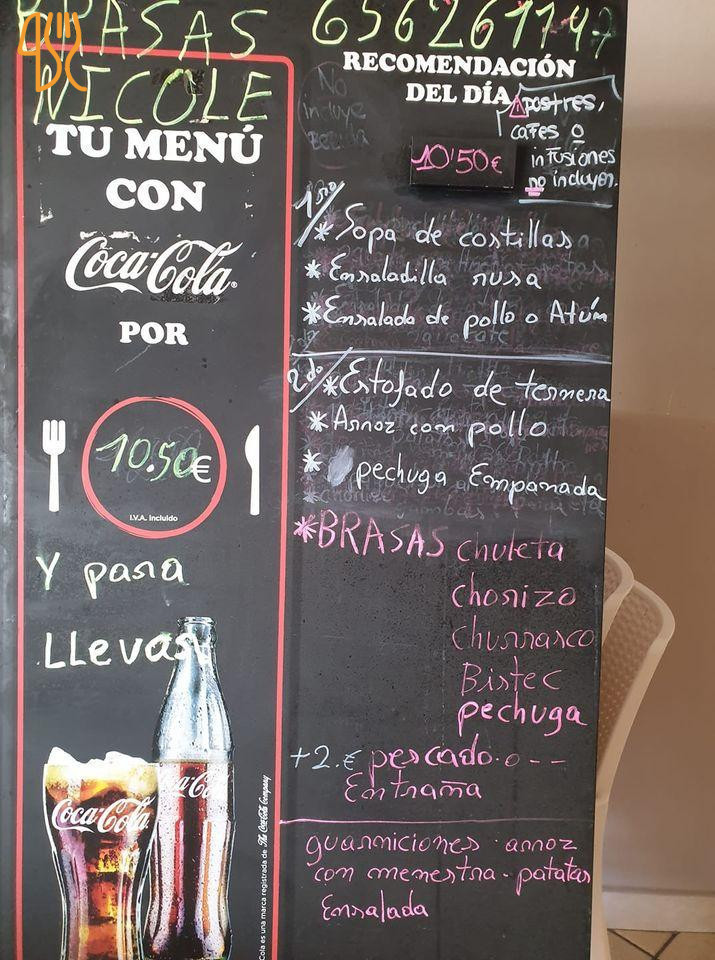 BRASAS
NICOLE
TU MENÚ
CON
Coca-Cola
POR
10.50€
I.V.A. Incluido
Y para
LLevar
Coca-Cola
Cola es una marca registrada de The Coca-Cola Company
RECOMENDACIÓN
DEL DÍA
No
incluye
Bebida
postres,
cafes o
infusiones
no incluyen.
10'50€
1ero
* Sopa de costillas
* Ensaladilla rusa
* Ensalada de pollo o Atún
2do
* Estofado de ternera
* Arroz con pollo
* pechuga Empanada
* BRASAS chuleta
chorizo
Churrasco
Bistec
pechuga
+2.€ pescado o --
Entraña
guarniciones arroz
con menestra - patatas
Ensalada